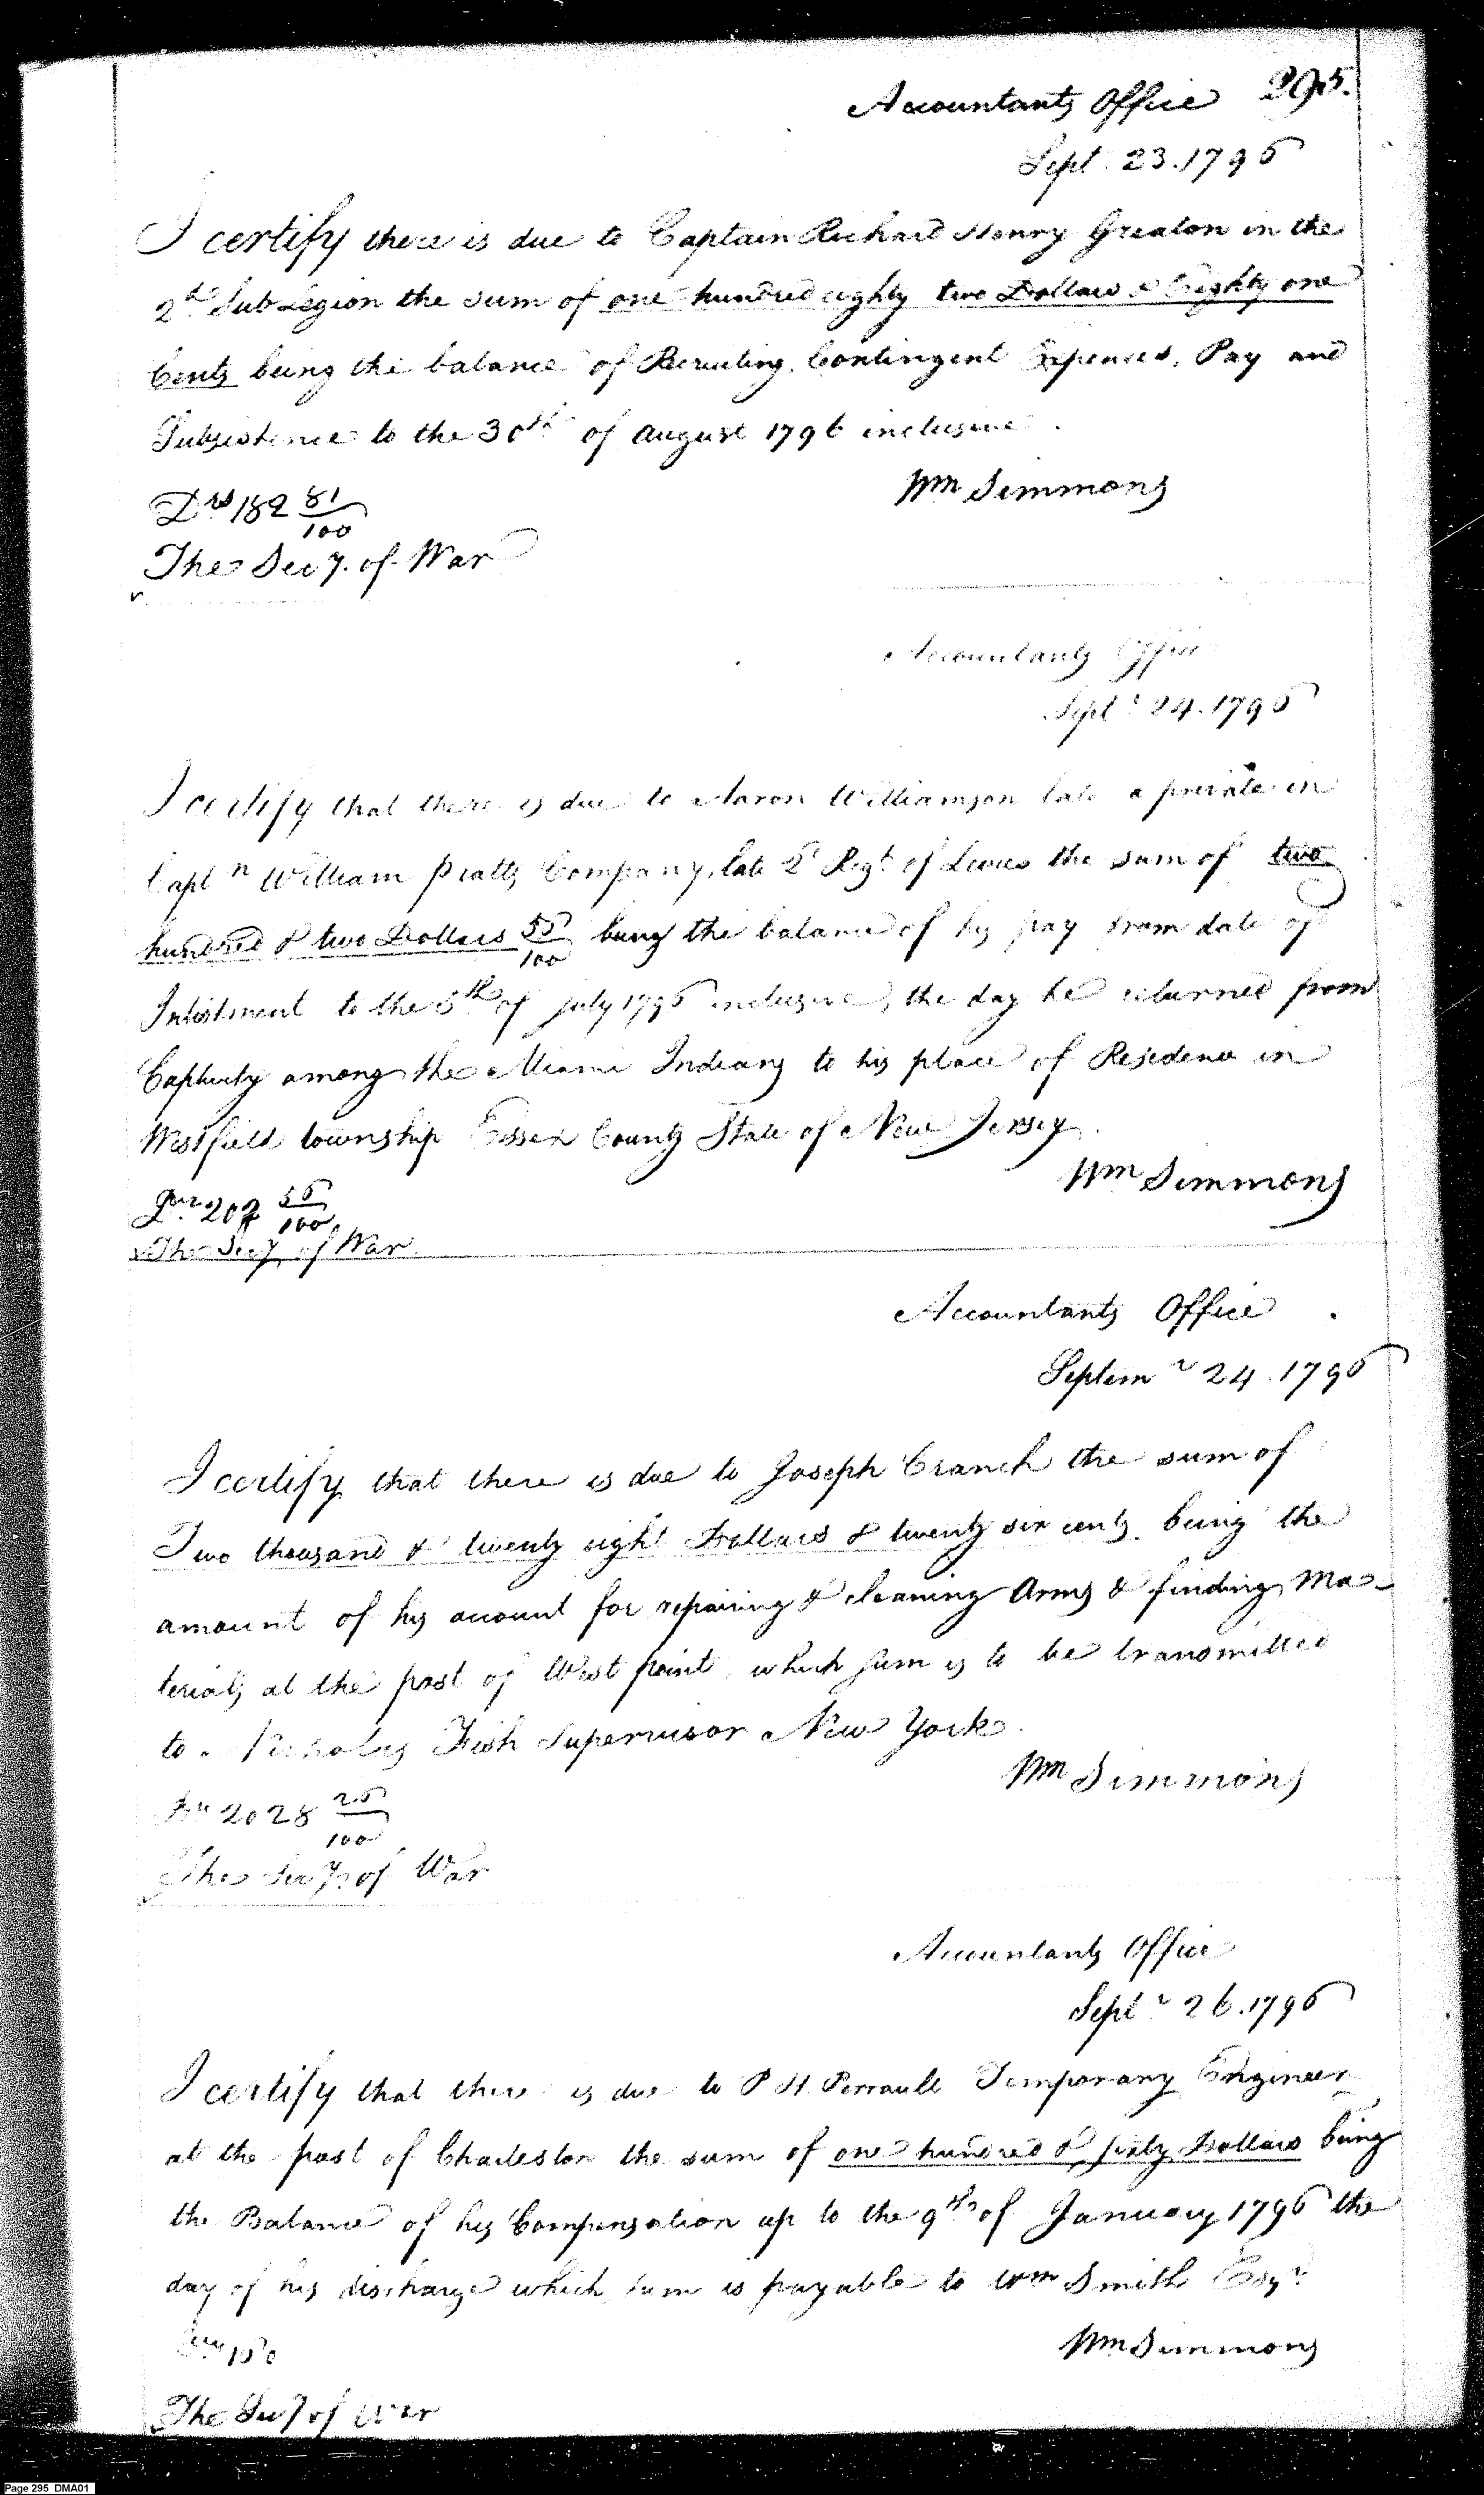 Accountants Office 295.
Sept. 23. 1796
I certify there is due to Captain Richard Henry Greaton in the
2d Sub Legion the sum of one hundred eighty two Dollars & Eighty one
Cents being the balance of Recruiting, Contingent Expences, Pay and
Subsistence to the 30th of August 1796 inclusive.
Wm Simmons
Drs 182 81/100
The Secy. of War
Accountants Office
Septr 24. 1796
I certify that there is due to Aaron Williamson late a private in
Captn William Piatts Company, late 2d Regt of Levies the sum of two
hundred & two Dollars 55/100 being the balance of his pay from date of
Inlistment to the 5th of July 1796 inclusive, the day he returned from
Captivity among the Miami Indians to his place of Residence in
Westfield township Essex County State of New Jersey.
Wm Simmons
202 55/100
The Secy of War
Accountants Office
Septemr 24. 1796
I certify that there is due to Joseph Cranch the sum of
Two thousand & twenty eight Dollars & twenty six cents. being the
amount of his account for repairing & cleaning Arms & finding Ma-
terials at the post of West point, which sum is to be transmitted
to Nicholas Fish Supervisor New York.
Wm Simmons
2028 26/100
The Secy of War
Accountants Office
Septr 26. 1796
I certify that there is due to P H Perrault Temporary Engineer
at the post of Charleston the sum of one hundred & sixty Dollars being
the Balance of his Compensation up to the 9th of January 1796 the
day of his discharge which sum is payable to Wm Smith Esqr.
Wm Simmons
The Secy of War
Page 295 DMA01